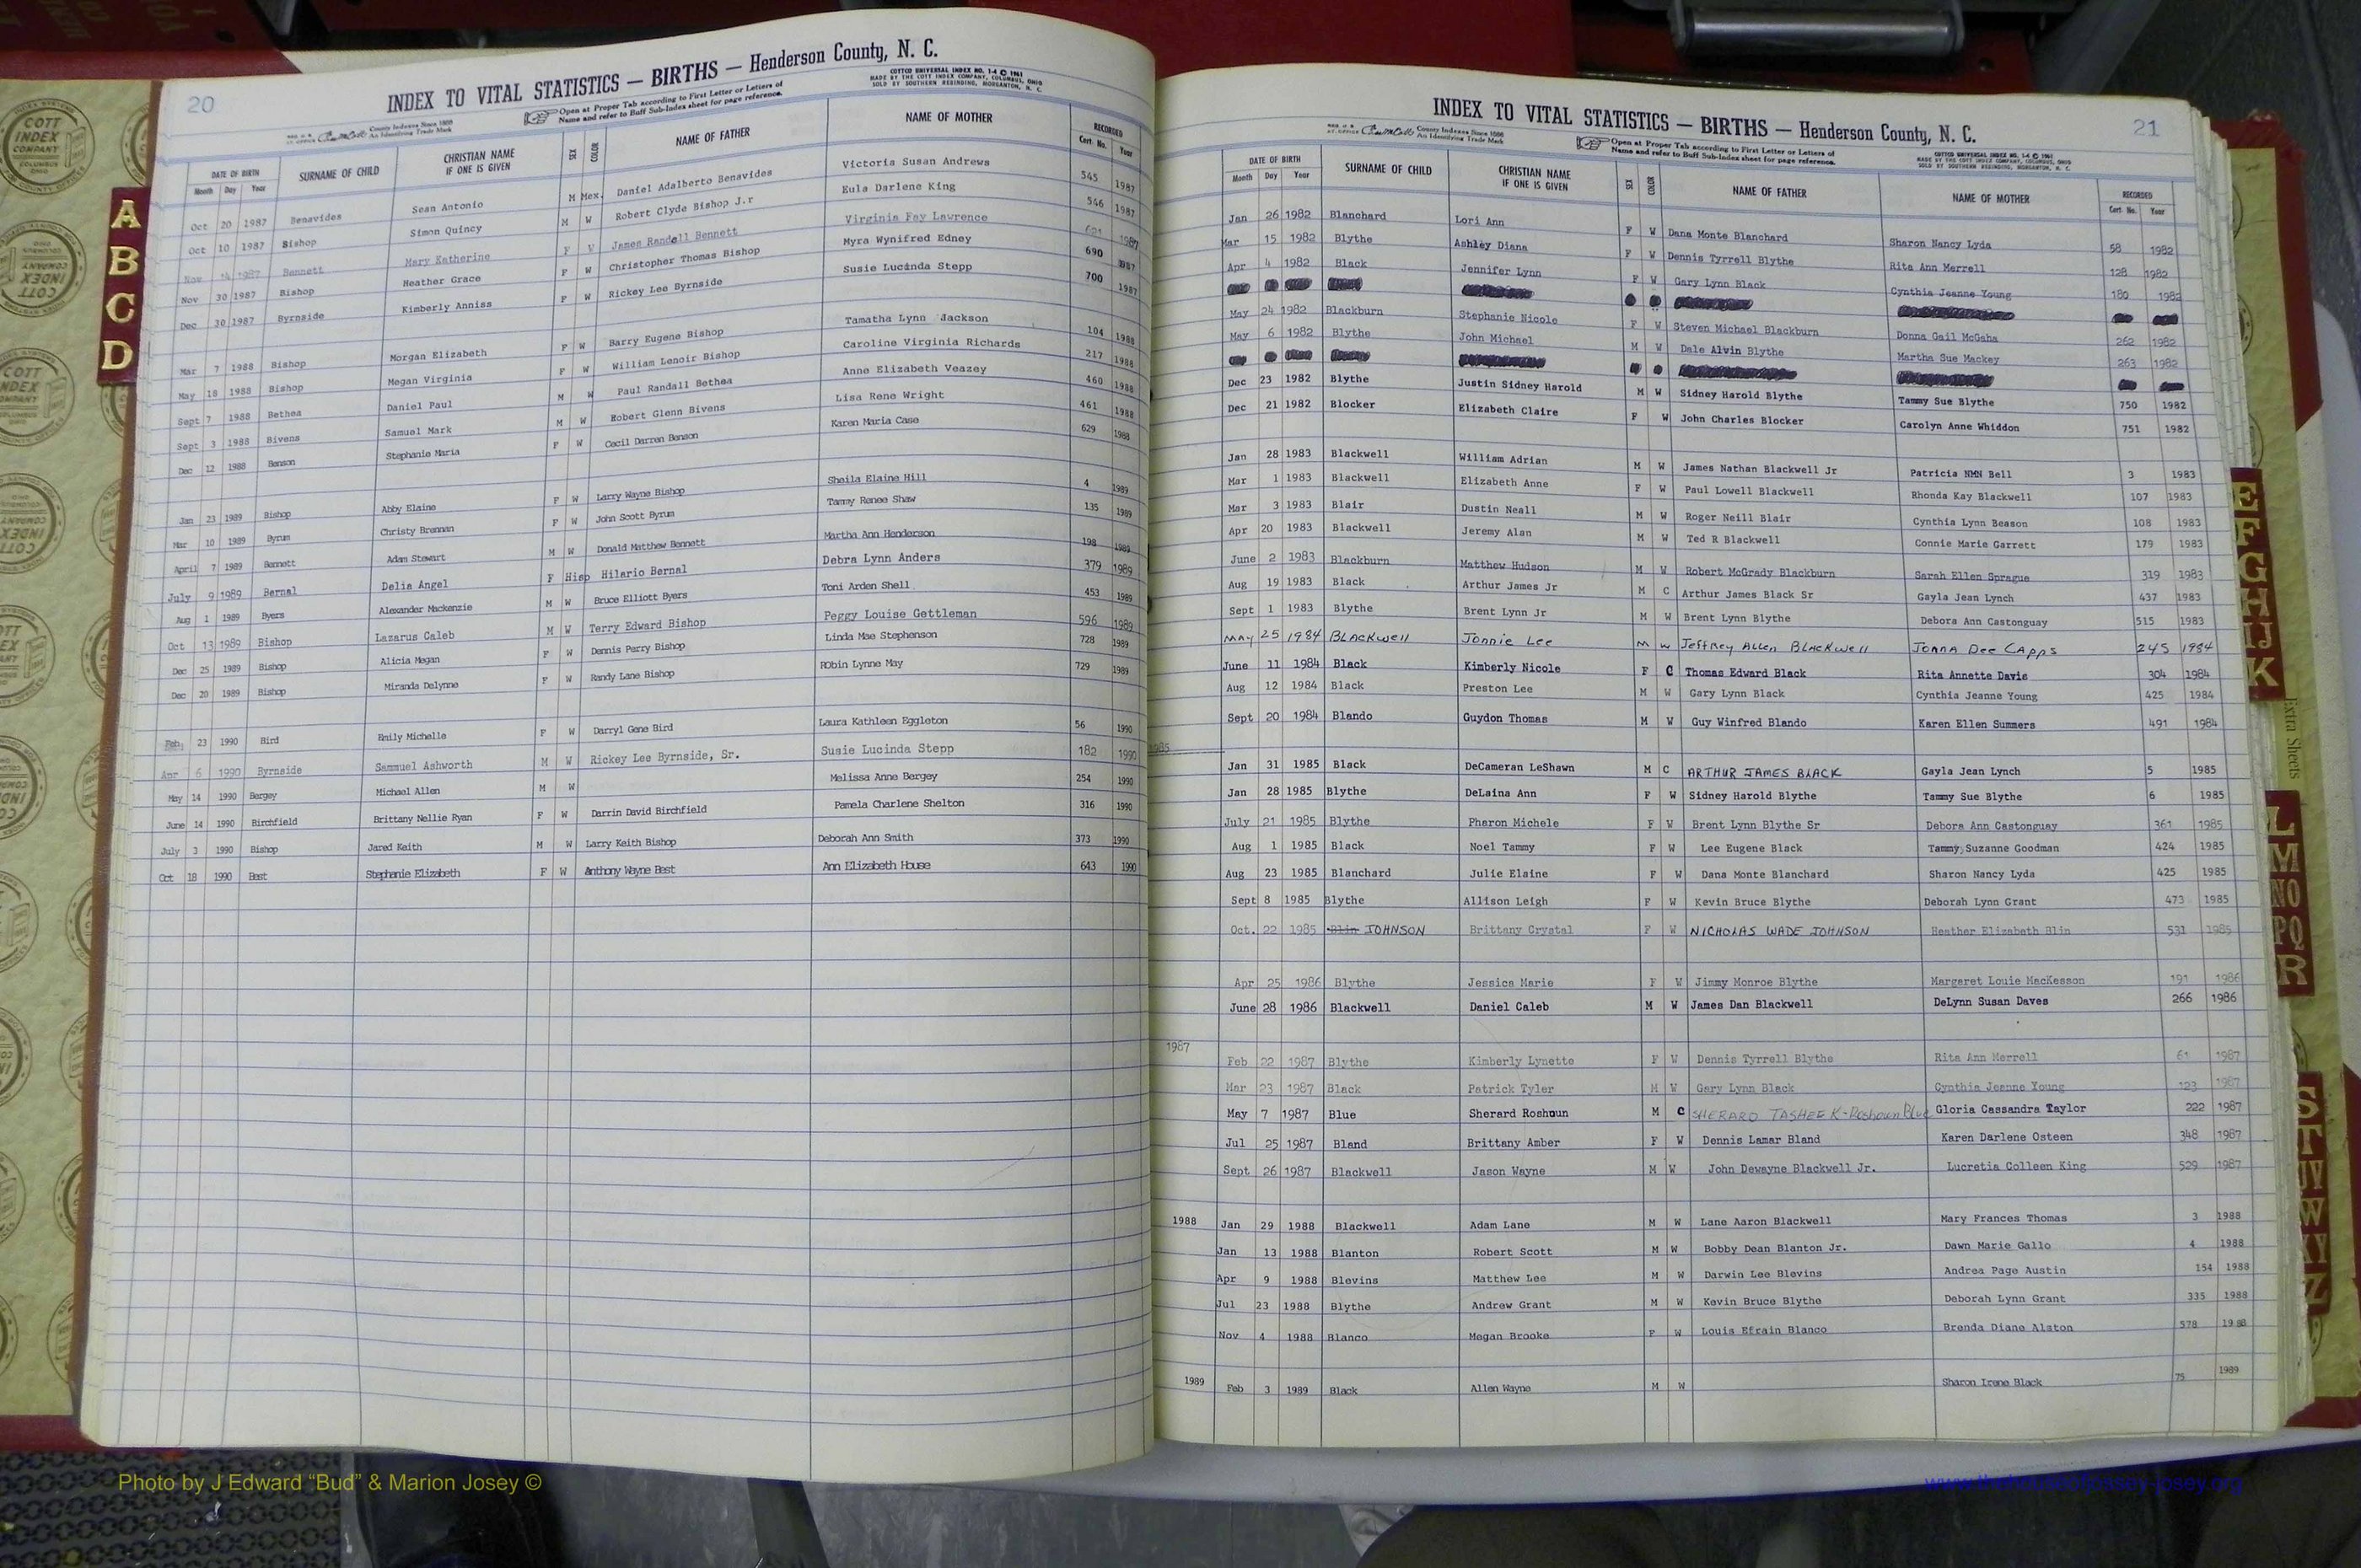 20
INDEX TO VITAL STATISTICS — BIRTHS — Henderson County, N. C.
COTTCO UNIVERSAL INDEX NO. 1-4 © 1961
MADE BY THE COTT INDEX COMPANY, COLUMBUS, OHIO
SOLD BY SOUTHERN REBINDING, MORGANTON, N. C.
County Indexes Since 1888
An Identifying Trade Mark
Open at Proper Tab according to First Letter or Letters of
Name and refer to Buff Sub-Index sheet for page reference.
DATE OF BIRTH SURNAME OF CHILD CHRISTIAN NAME IF ONE IS GIVEN SEX COLOR NAME OF FATHER NAME OF MOTHER RECORDED
Month Day Year Cert. No. Year
Oct 20 1987 Benavides Sean Antonio M Mex. Daniel Adalberto Benavides Victoria Susan Andrews 545 1987
Oct 10 1987 Bishop Simon Quincy M W Robert Clyde Bishop J.r Eula Darlene King 546 1987
Nov 14 1987 Bennett Mary Katherine F W James Randall Bennett Virginia Fay Lawrence 1987
Nov 30 1987 Bishop Heather Grace F W Christopher Thomas Bishop Myra Wynifred Edney 690 1987
Dec 30 1987 Byrnside Kimberly Anniss F W Rickey Lee Byrnside Susie Lucinda Stepp 700 1987
Mar 7 1988 Bishop Morgan Elizabeth F W Barry Eugene Bishop Tamatha Lynn Jackson 104 1988
May 18 1988 Bishop Megan Virginia F W William Lenoir Bishop Caroline Virginia Richards 217 1988
Sept 7 1988 Bethea Daniel Paul M W Paul Randall Bethea Anne Elizabeth Veazey 460 1988
Sept 3 1988 Bivens Samuel Mark M W Robert Glenn Bivens Lisa Rene Wright 461 1988
Dec 12 1988 Benson Stephanie Maria F W Cecil Darren Benson Karen Maria Case 629 1988
Jan 23 1989 Bishop Abby Elaine F W Larry Wayne Bishop Sheila Elaine Hill 4 1989
Mar 10 1989 Byrum Christy Brennan F W John Scott Byrum Tammy Renee Shaw 135 1989
April 7 1989 Bennett Adam Stewart M W Donald Matthew Bennett Martha Ann Henderson 198 1989
July 9 1989 Bernal Delia Angel F Hisp Hilario Bernal Debra Lynn Anders 379 1989
Aug 1 1989 Byers Alexander Mackenzie M W Bruce Elliott Byers Toni Arden Shell 453 1989
Oct 13 1989 Bishop Lazarus Caleb M W Terry Edward Bishop Peggy Louise Gettleman 596 1989
Dec 25 1989 Bishop Alicia Megan F W Dennis Perry Bishop Linda Mae Stephenson 728 1989
Dec 20 1989 Bishop Miranda Delynne F W Randy Lane Bishop RObin Lynne May 729 1989
Feb. 23 1990 Bird Emily Michelle F W Darryl Gene Bird Laura Kathleen Eggleton 56 1990
Apr 6 1990 Byrnside Sammuel Ashworth M W Rickey Lee Byrnside, Sr. Susie Lucinda Stepp 182 1990
May 14 1990 Bergey Michael Allen M W Melissa Anne Bergey 254 1990
June 14 1990 Birchfield Brittany Nellie Ryan F W Darrin David Birchfield Pamela Charlene Shelton 316 1990
July 3 1990 Bishop Jared Keith M W Larry Keith Bishop Deborah Ann Smith 373 1990
Oct 18 1990 Best Stephanie Elizabeth F W Anthony Wayne Best Ann Elizabeth House 643 1990
21
INDEX TO VITAL STATISTICS — BIRTHS — Henderson County, N. C.
County Indexes Since 1888
An Identifying Trade Mark
Open at Proper Tab according to First Letter or Letters of
Name and refer to Buff Sub-Index sheet for page reference.
COTTCO UNIVERSAL INDEX NO. 1-4 © 1961
MADE BY THE COTT INDEX COMPANY, COLUMBUS, OHIO
SOLD BY SOUTHERN REBINDING, MORGANTON, N. C.
DATE OF BIRTH SURNAME OF CHILD CHRISTIAN NAME IF ONE IS GIVEN SEX COLOR NAME OF FATHER NAME OF MOTHER RECORDED
Month Day Year Cert. No. Year
Jan 26 1982 Blanchard Lori Ann F W Dana Monte Blanchard Sharon Nancy Lyda 58 1982
Mar 15 1982 Blythe Ashley Diana F W Dennis Tyrrell Blythe Rita Ann Merrell 128 1982
Apr 4 1982 Black Jennifer Lynn F W Gary Lynn Black Cynthia Jeanne Young 180 1982
May 24 1982 Blackburn Stephanie Nicole F W Steven Michael Blackburn Donna Gail McGaha 262 1982
May 6 1982 Blythe John Michael M W Dale Alvin Blythe Martha Sue Mackey 263 1982
Dec 23 1982 Blythe Justin Sidney Harold M W Sidney Harold Blythe Tammy Sue Blythe 750 1982
Dec 21 1982 Blocker Elizabeth Claire F W John Charles Blocker Carolyn Anne Whiddon 751 1982
Jan 28 1983 Blackwell William Adrian M W James Nathan Blackwell Jr Patricia NMN Bell 3 1983
Mar 1 1983 Blackwell Elizabeth Anne F W Paul Lowell Blackwell Rhonda Kay Blackwell 107 1983
Mar 3 1983 Blair Dustin Neall M W Roger Neill Blair Cynthia Lynn Beason 108 1983
Apr 20 1983 Blackwell Jeremy Alan M W Ted R Blackwell Connie Marie Garrett 179 1983
June 2 1983 Blackburn Matthew Hudson M W Robert McGrady Blackburn Sarah Ellen Sprague 319 1983
Aug 19 1983 Black Arthur James Jr M C Arthur James Black Sr Gayla Jean Lynch 437 1983
Sept 1 1983 Blythe Brent Lynn Jr M W Brent Lynn Blythe Debora Ann Castonguay 515 1983
MAY 25 1984 BLACKWell Jonnie Lee M W Jeffrey Allen BLACKWell JONNA Dee CAPPS 245 1984
June 11 1984 Black Kimberly Nicole F C Thomas Edward Black Rita Annette Davis 304 1984
Aug 12 1984 Black Preston Lee M W Gary Lynn Black Cynthia Jeanne Young 425 1984
Sept 20 1984 Blando Guydon Thomas M W Guy Winfred Blando Karen Ellen Summers 491 1984
1985
Jan 31 1985 Black DeCameran LeShawn M C ARTHUR JAMES BLACK Gayla Jean Lynch 5 1985
Jan 28 1985 Blythe DeLaina Ann F W Sidney Harold Blythe Tammy Sue Blythe 6 1985
July 21 1985 Blythe Pharon Michele F W Brent Lynn Blythe Sr Debora Ann Castonguay 361 1985
Aug 1 1985 Black Noel Tammy F W Lee Eugene Black Tammy Suzanne Goodman 424 1985
Aug 23 1985 Blanchard Julie Elaine F W Dana Monte Blanchard Sharon Nancy Lyda 425 1985
Sept 8 1985 Blythe Allison Leigh F W Kevin Bruce Blythe Deborah Lynn Grant 473 1985
Oct. 22 1985 Blin JOHNSON Brittany Crystal F W NICHOLAS WADE JOHNSON Heather Elizabeth Blin 531 1985
Apr 25 1986 Blythe Jessica Marie F W Jimmy Monroe Blythe Margaret Louie MacKesson 191 1986
June 28 1986 Blackwell Daniel Caleb M W James Dan Blackwell DeLynn Susan Daves 266 1986
1987
Feb 22 1987 Blythe Kimberly Lynette F W Dennis Tyrrell Blythe Rita Ann Merrell 61 1987
Mar 23 1987 Black Patrick Tyler M W Gary Lynn Black Cynthia Jeanne Young 123 1987
May 7 1987 Blue Sherard Roshoun M C SHERARD TASHEEK-Roshoun Blue Gloria Cassandra Taylor 222 1987
Jul 25 1987 Bland Brittany Amber F W Dennis Lamar Bland Karen Darlene Osteen 348 1987
Sept 26 1987 Blackwell Jason Wayne M W John Dewayne Blackwell Jr. Lucretia Colleen King 529 1987
1988 Jan 29 1988 Blackwell Adam Lane M W Lane Aaron Blackwell Mary Frances Thomas 3 1988
Jan 13 1988 Blanton Robert Scott M W Bobby Dean Blanton Jr. Dawn Marie Gallo 4 1988
Apr 9 1988 Blevins Matthew Lee M W Darwin Lee Blevins Andrea Page Austin 154 1988
Jul 23 1988 Blythe Andrew Grant M W Kevin Bruce Blythe Deborah Lynn Grant 335 1988
Nov 4 1988 Blanco Megan Brooke F W Louis Efrain Blanco Brenda Diane Alston 578 1988
1989 Feb 3 1989 Black Allen Wayne M W Sharon Irene Black 75 1989
A
B
C
D
E
F
G
H
IJ
K
Extra Sheets
L
M
NO
PQ
R
S
T
UV
W
XY
Z
COTT
INDEX
COMPANY
COLUMBUS
OHIO
Photo by J Edward “Bud” & Marion Josey ©
www.thehouseofjossey-josey.org